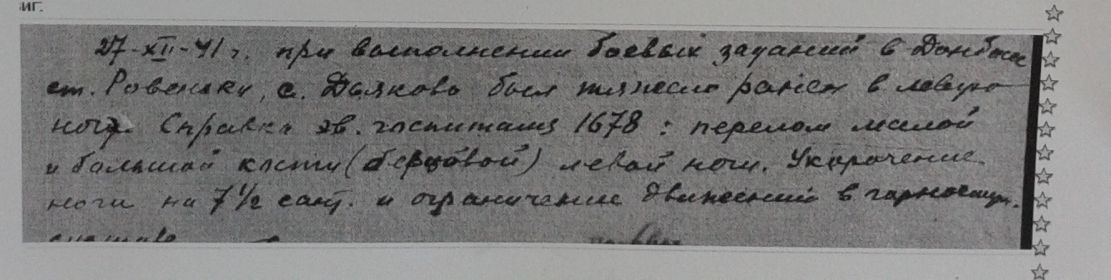 иг.
27-XII-41 г. при выполнении боевых заданий в Донбасе
ст. Ровеньки, с. Дьяково был тяжело ранен в левую
ногу. Справка эв. госпиталя 1678: перелом малой
и большой кости (берцовой) левой ноги. Укорочение
ноги на 7 1/2 сант. и ограничение движений в
суставе